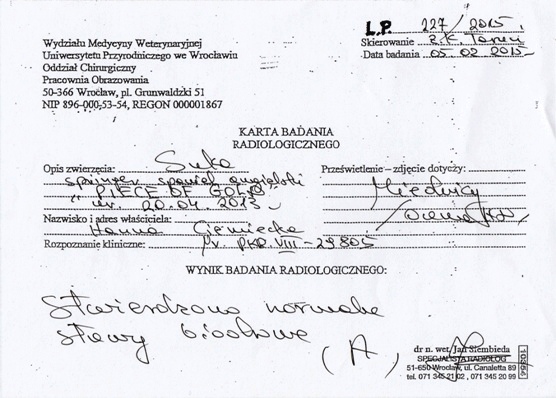 L.P. 227/2015.
Wydziału Medycyny Weterynaryjnej
Uniwersytetu Przyrodniczego we Wrocławiu
Oddział Chirurgiczny
Pracownia Obrazowania
50-366 Wrocław, pl. Grunwaldzki 51
NIP 896-000-53-54, REGON 000001867
Skierowanie Z.K.
Data badania 05.02 2015
KARTA BADANIA
RADIOLOGICZNEGO
Opis zwierzęcia: Suka
springer spaniel angielski
"PIECE OF GOLD"
ur. 20.04.2013
Prześwietlenie – zdjęcie dotyczy:
Miednicy
Nazwisko i adres właściciela:
Hanna Ciemiecka
Rozpoznanie kliniczne: Nr. PKR.VIII-29805
WYNIK BADANIA RADIOLOGICZNEGO:
Stwierdzono normalne
stawy biodrowe
(A)
dr n. wet. Jan Siembieda
SPECJALISTA RADIOLOG
51-650 Wrocław, ul. Canaletta 89
tel. 071 345 21 02, 071 345 20 99